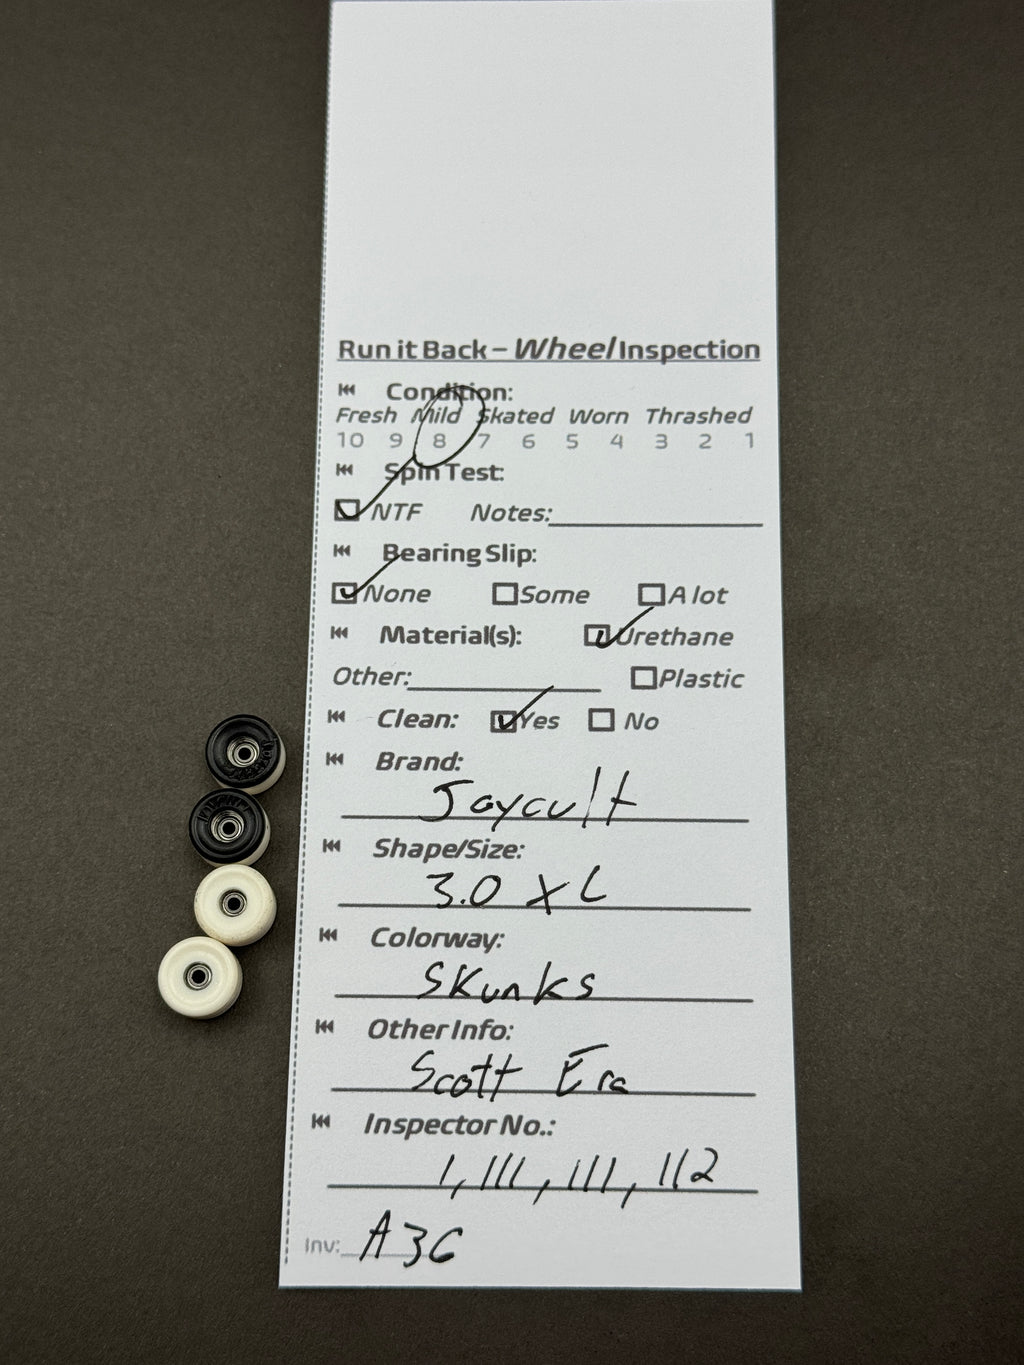 Run it Back – Wheel Inspection
Condition:
Fresh Mild Skated Worn Thrashed
10 9 8 7 6 5 4 3 2 1
Spin Test:
NTF Notes:
Bearing Slip:
None Some A lot
Material(s): Urethane
Other: Plastic
Clean: Yes No
Brand:
Joycult
Shape/Size:
3.0 XL
Colorway:
Skunks
Other Info:
Scott Era
Inspector No.:
1,111,111,112
Inv: A36